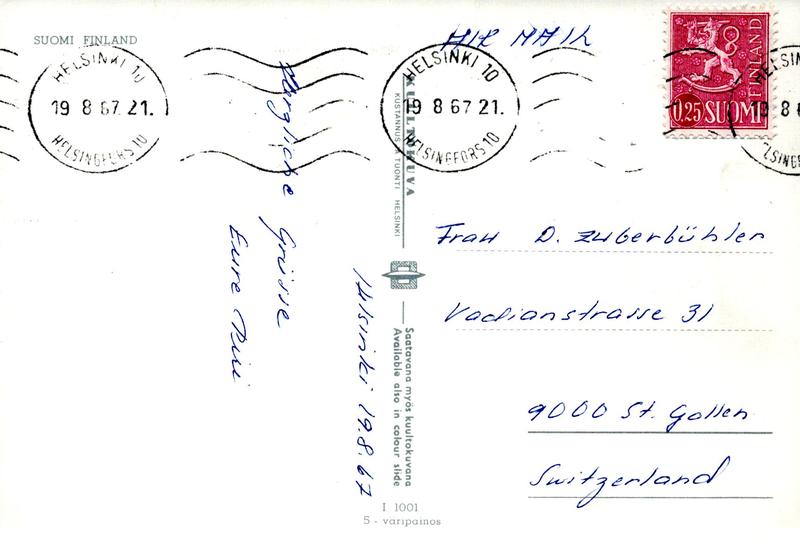 SUOMI FINLAND
AIR MAIL
HELSINKI 10
19 8 67 21.
HELSINGFORS 10
HELSINKI 10
19 8 67 21.
HELSINGFORS 10
FINLAND
0,25 SUOMI
Herzliche Grüsse
Helsinki 19.8.67
KUSTANNUS TUONTI HELSINKI
Saatavana myös kuultokuvana
Available also in colour slide
Frau D. Zuberbühler
Vadianstrasse 31
9000 St. Gallen
Switzerland
I 1001
5 - väripainos